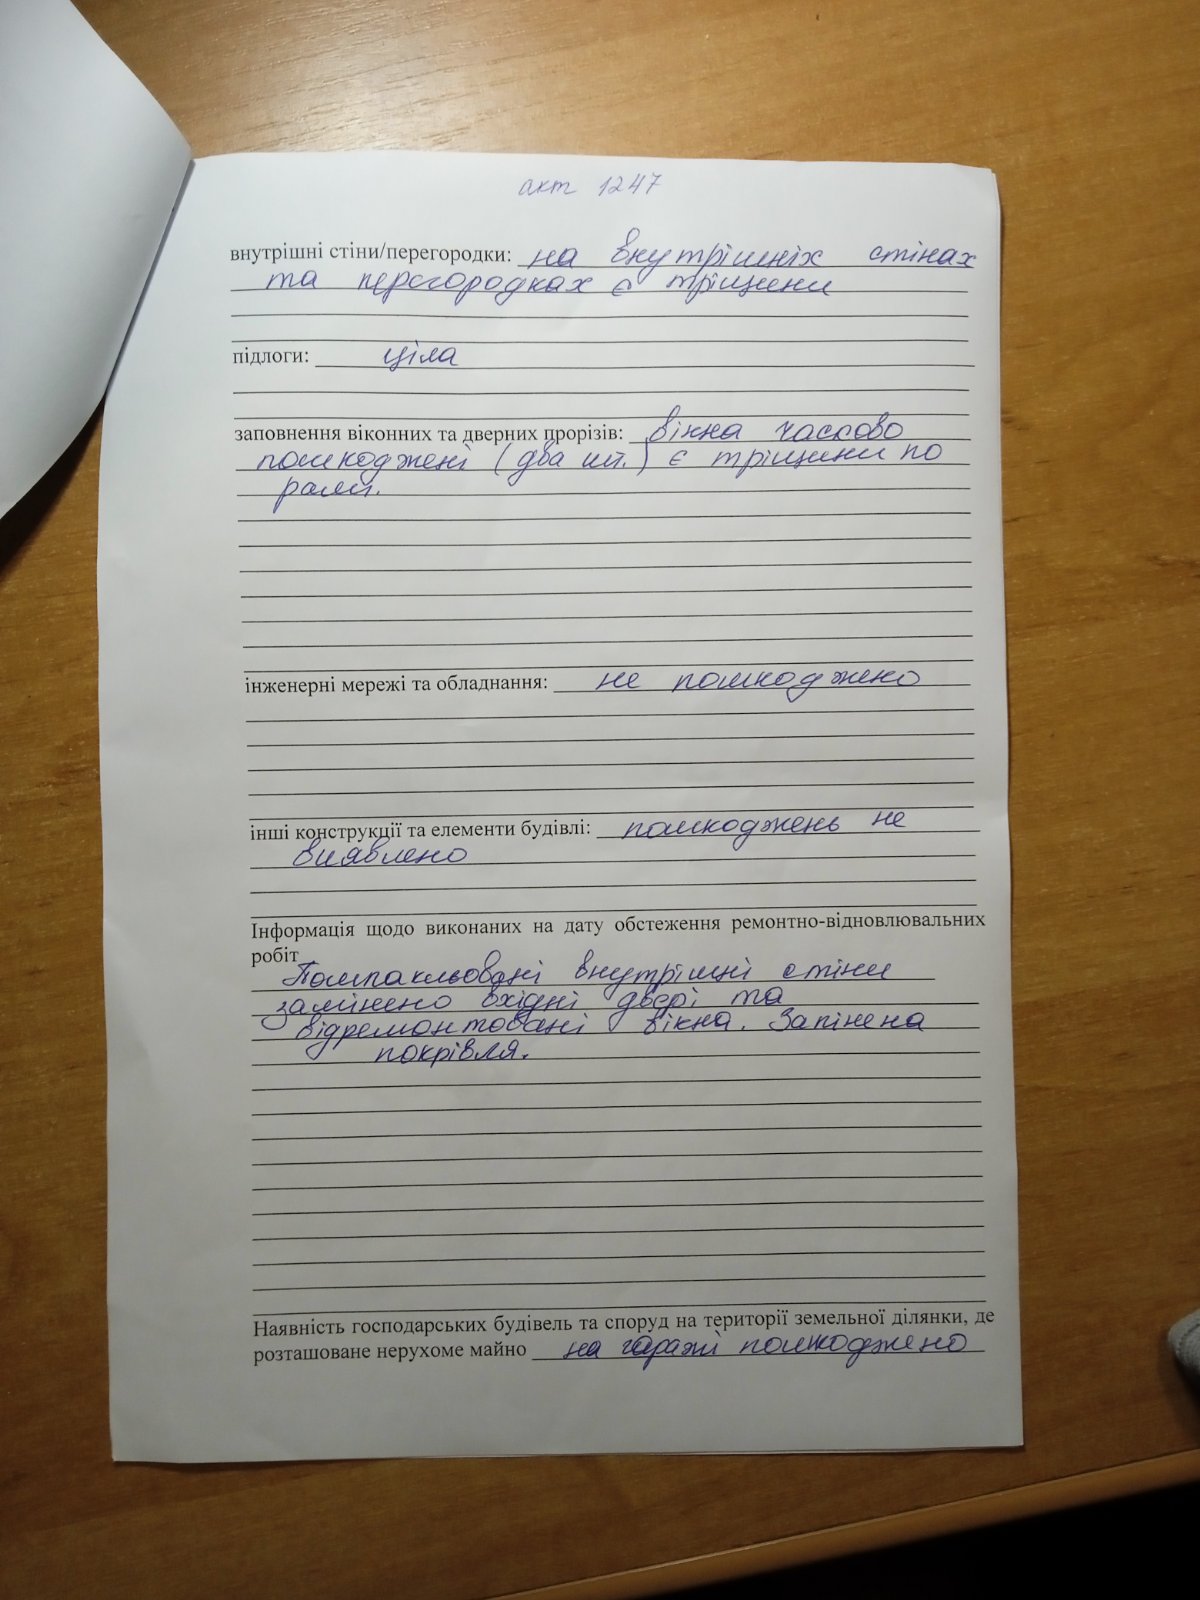 акт 1247
внутрішні стіни/перегородки: на внутрішніх стінах
та перегородках є тріщини
підлоги: ціла
заповнення віконних та дверних прорізів: вікна часково
пошкоджені (два шт.) є тріщини по
рамі.
інженерні мережі та обладнання: не пошкоджено
інші конструкції та елементи будівлі: пошкоджень не
виявлено
Інформація щодо виконаних на дату обстеження ремонтно-відновлювальних
робіт
Пошпакльовані внутрішні стіни
замінено вхідні двері та
відремонтовані вікна. Запінена
покрівля.
Наявність господарських будівель та споруд на території земельної ділянки, де
розташоване нерухоме майно на гаражі пошкоджено